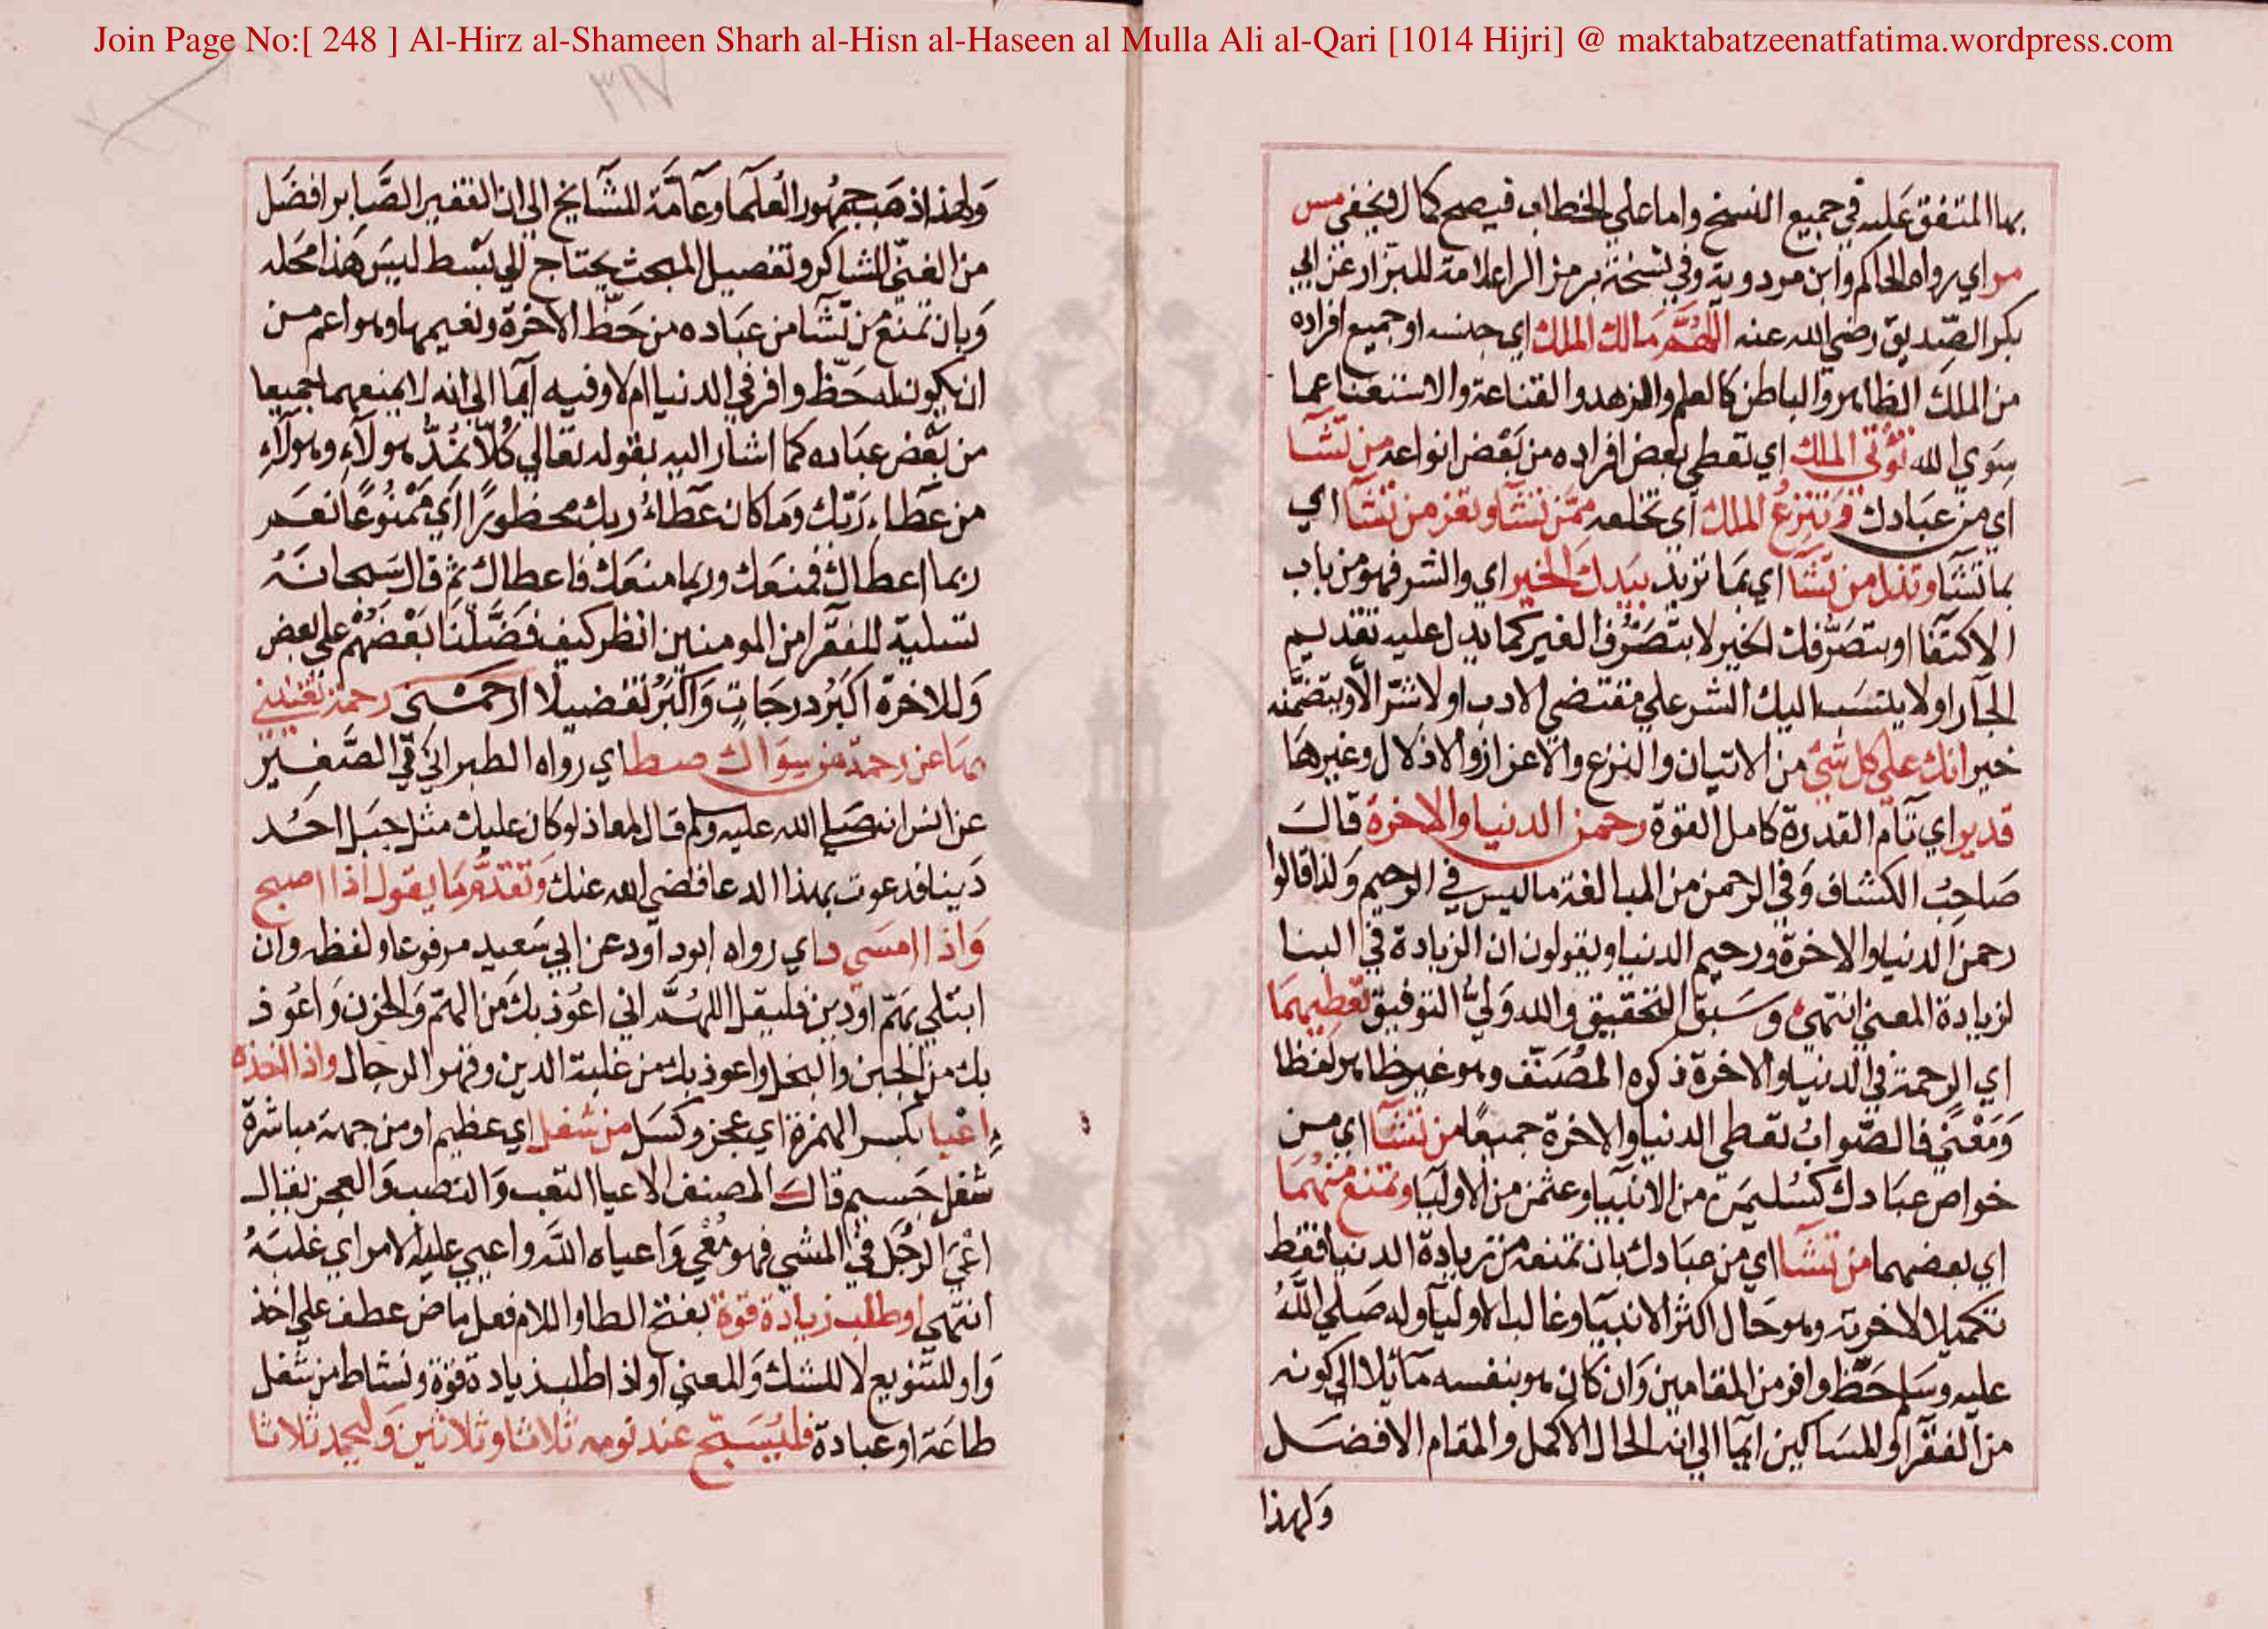 Join Page No:[ 248 ] Al-Hirz al-Shameen Sharh al-Hisn al-Haseen al Mulla Ali al-Qari [1014 Hijri] @ maktabatzeenatfatima.wordpress.com
بها المتفق عليه في جميع النسخ واما على الخطاب فيصح كما لا يخفى مس
مر اي رواه الحاكم وابن مردويه وفي نسخة برمز الراء علامة للبزار عن ابي
بكر الصديق رضي الله عنه اللهم مالك الملك اي جنسه او جميع افراده
من الملك الظاهر والباطن كالعلم والزهد والقناعة والاستغنا عما
سوى الله تؤتى الملك اي تعطى بعض افراده من بعض انواعه من تشآ
اي من عبادك وتنزع الملك اي تخلعه ممن تشآ وتعز من تشآ اي
بما تشآ وتذل من تشآ اي بما تريد بيدك الخير اي والشر فهو من باب
الاكتفا او بتصرفك الخير لا بتصرف الغير كما يدل عليه تقديم
الجار او لا ينسب اليك الشر على مقتضى الادب او لا شر الا ويتضمنه
خير انك على كل شئ من الاتيان والنزع والاعزاز والاذلال وغيرها
قدير اي تام القدرة كامل القوة رحمن الدنيا والاخرة قال
صاحب الكشاف وفي الرحمن من المبالغة ما ليس في الرحيم ولذا قالوا
رحمن الدنيا والاخرة ورحيم الدنيا ويقولون ان الزيادة في البنا
لزيادة المعنى انتهى وسبق التحقيق والله ولي التوفيق تعطيهما
اي الرحمة في الدنيا والاخرة ذكره المصنف وهو غير ظاهر لفظا
ومعنى فالصواب تعطى الدنيا والاخرة جميعا من تشآ اي من
خواص عبادك كسليمن من الانبيا وعثمن من الاوليا وتمنع منهما
اي بعضهما من تشآ اي من عبادك بان تمنعه من زيادة الدنيا فقط
تكميلا لاخرته وهو حال اكثر الانبيا وغالب الاوليا وله صلى الله
عليه وسلم حظ وافر من المقامين وان كان هو بنفسه مائلا الى كونه
من الفقرا والمساكين ايما الى انه الحال الاكمل والمقام الافضل
ولهذا
ولهذا ذهب جمهور العلما وعامة المشايخ الى ان الفقير الصابر افضل
من الغني الشاكر وتفصيل المبحث يحتاج الى بسط ليس هذا محله
وبان تمنع من تشا من عباده من حظ الاخرة ونعيمها وهو اعم من
ان يكون له حظ وافر في الدنيا ام لا وفيه ايما الى انه لا يمنعهما جميعا
من بعض عباده كما اشار اليه بقوله تعالى كلا نمد هولآء وهولآء
من عطاء ربك وما كان عطاء ربك محظورا اي ممنوعا نعم
ربما اعطاك فمنعك وربما منعك فاعطاك ثم قال سبحانه
تسلية للفقرا من المومنين انظر كيف فضلنا بعضهم على بعض
وللاخرة اكبر درجات واكبر تفضيلا ارحمني رحمة تغنيني
بها عن رحمة من سواك صط اي رواه الطبراني في الصغير
عن انس انه صلى الله عليه وسلم قال لمعاذ لو كان عليك مثل جبل احد
دينا فدعوت بهذا الدعا قضى الله عنك وتقدم ما يقول اذا اصبح
واذا امسى د اي رواه ابو داود عن ابي سعيد مرفوعا ولفظه وان
ابتلي بهم او دين فليقل اللهم اني اعوذ بك من الهم والحزن واعوذ
بك من الجبن والبخل واعوذ بك من غلبة الدين وقهر الرجال واذا اخذه
اعيا بكسر الهمزة اي عجز وكسل من شغل اي عظيم او من جهة مباشرة
شغل جسيم قال المصنف الاعيا التعب والنصب والعجز يقال
اعيى الرجل في المشي فهو معي واعياه الله واعيى عليه الامر اي غلبه
انتهى او طلب زيادة قوة بفتح الطا واللام فعل ماض عطف على اخذ
واو للتنويع لا للشك والمعنى او اذا طلب زيادة قوة ونشاط من شغل
طاعة او عبادة فليسبح عند نومه ثلاثا وثلاثين وليحمد ثلاثا